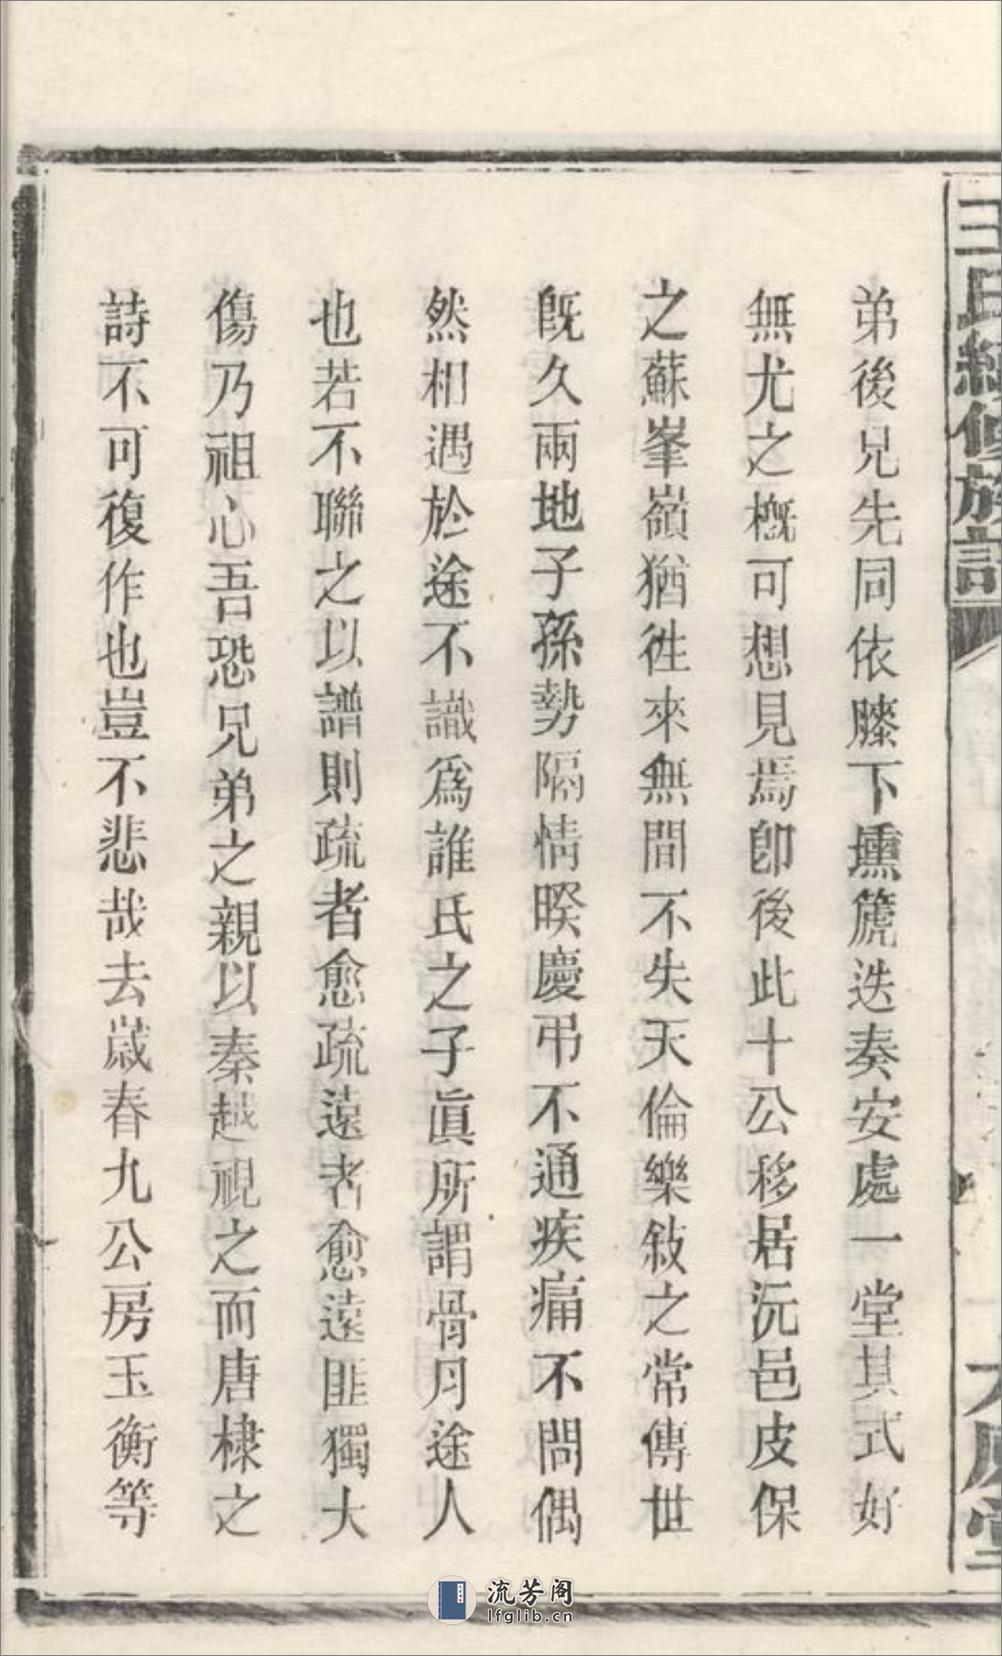 王氏續修族譜
大原堂
弟後兄先同依膝下壎篪迭奏安處一堂其式好
無尤之槪可想見焉卽後此十公移居沅邑皮保
之蘇峯嶺猶徃來無間不失天倫樂敍之常傳世
旣久兩地子孫勢隔情暌慶弔不通疾痛不問偶
然相遇於途不識爲誰氏之子眞所謂骨月途人
也若不聯之以譜則疏者愈疏遠者愈遠匪獨大
傷乃祖心吾恐兄弟之親以秦越視之而唐棣之
詩不可復作也豈不悲哉去歲春九公房玉衡等
流芳阁
lfglib.cn